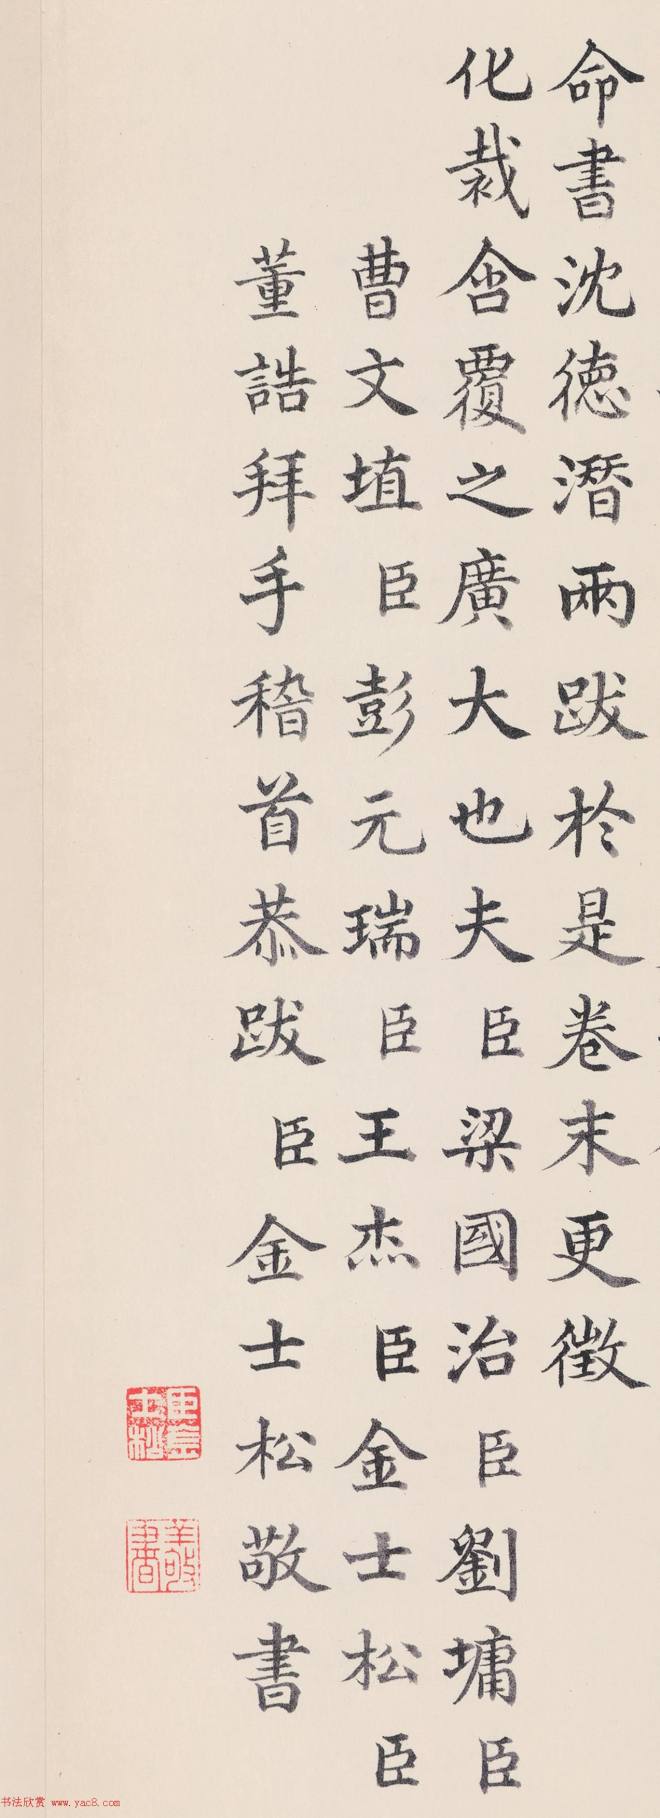 命書沈德潛兩跋於是卷末更徵
化裁含覆之廣大也夫臣梁國治臣劉墉臣
曹文埴臣彭元瑞臣王杰臣金士松臣
董誥拜手稽首恭跋臣金士松敬書
臣金士松
敬書
书法欣赏 www.yac8.com